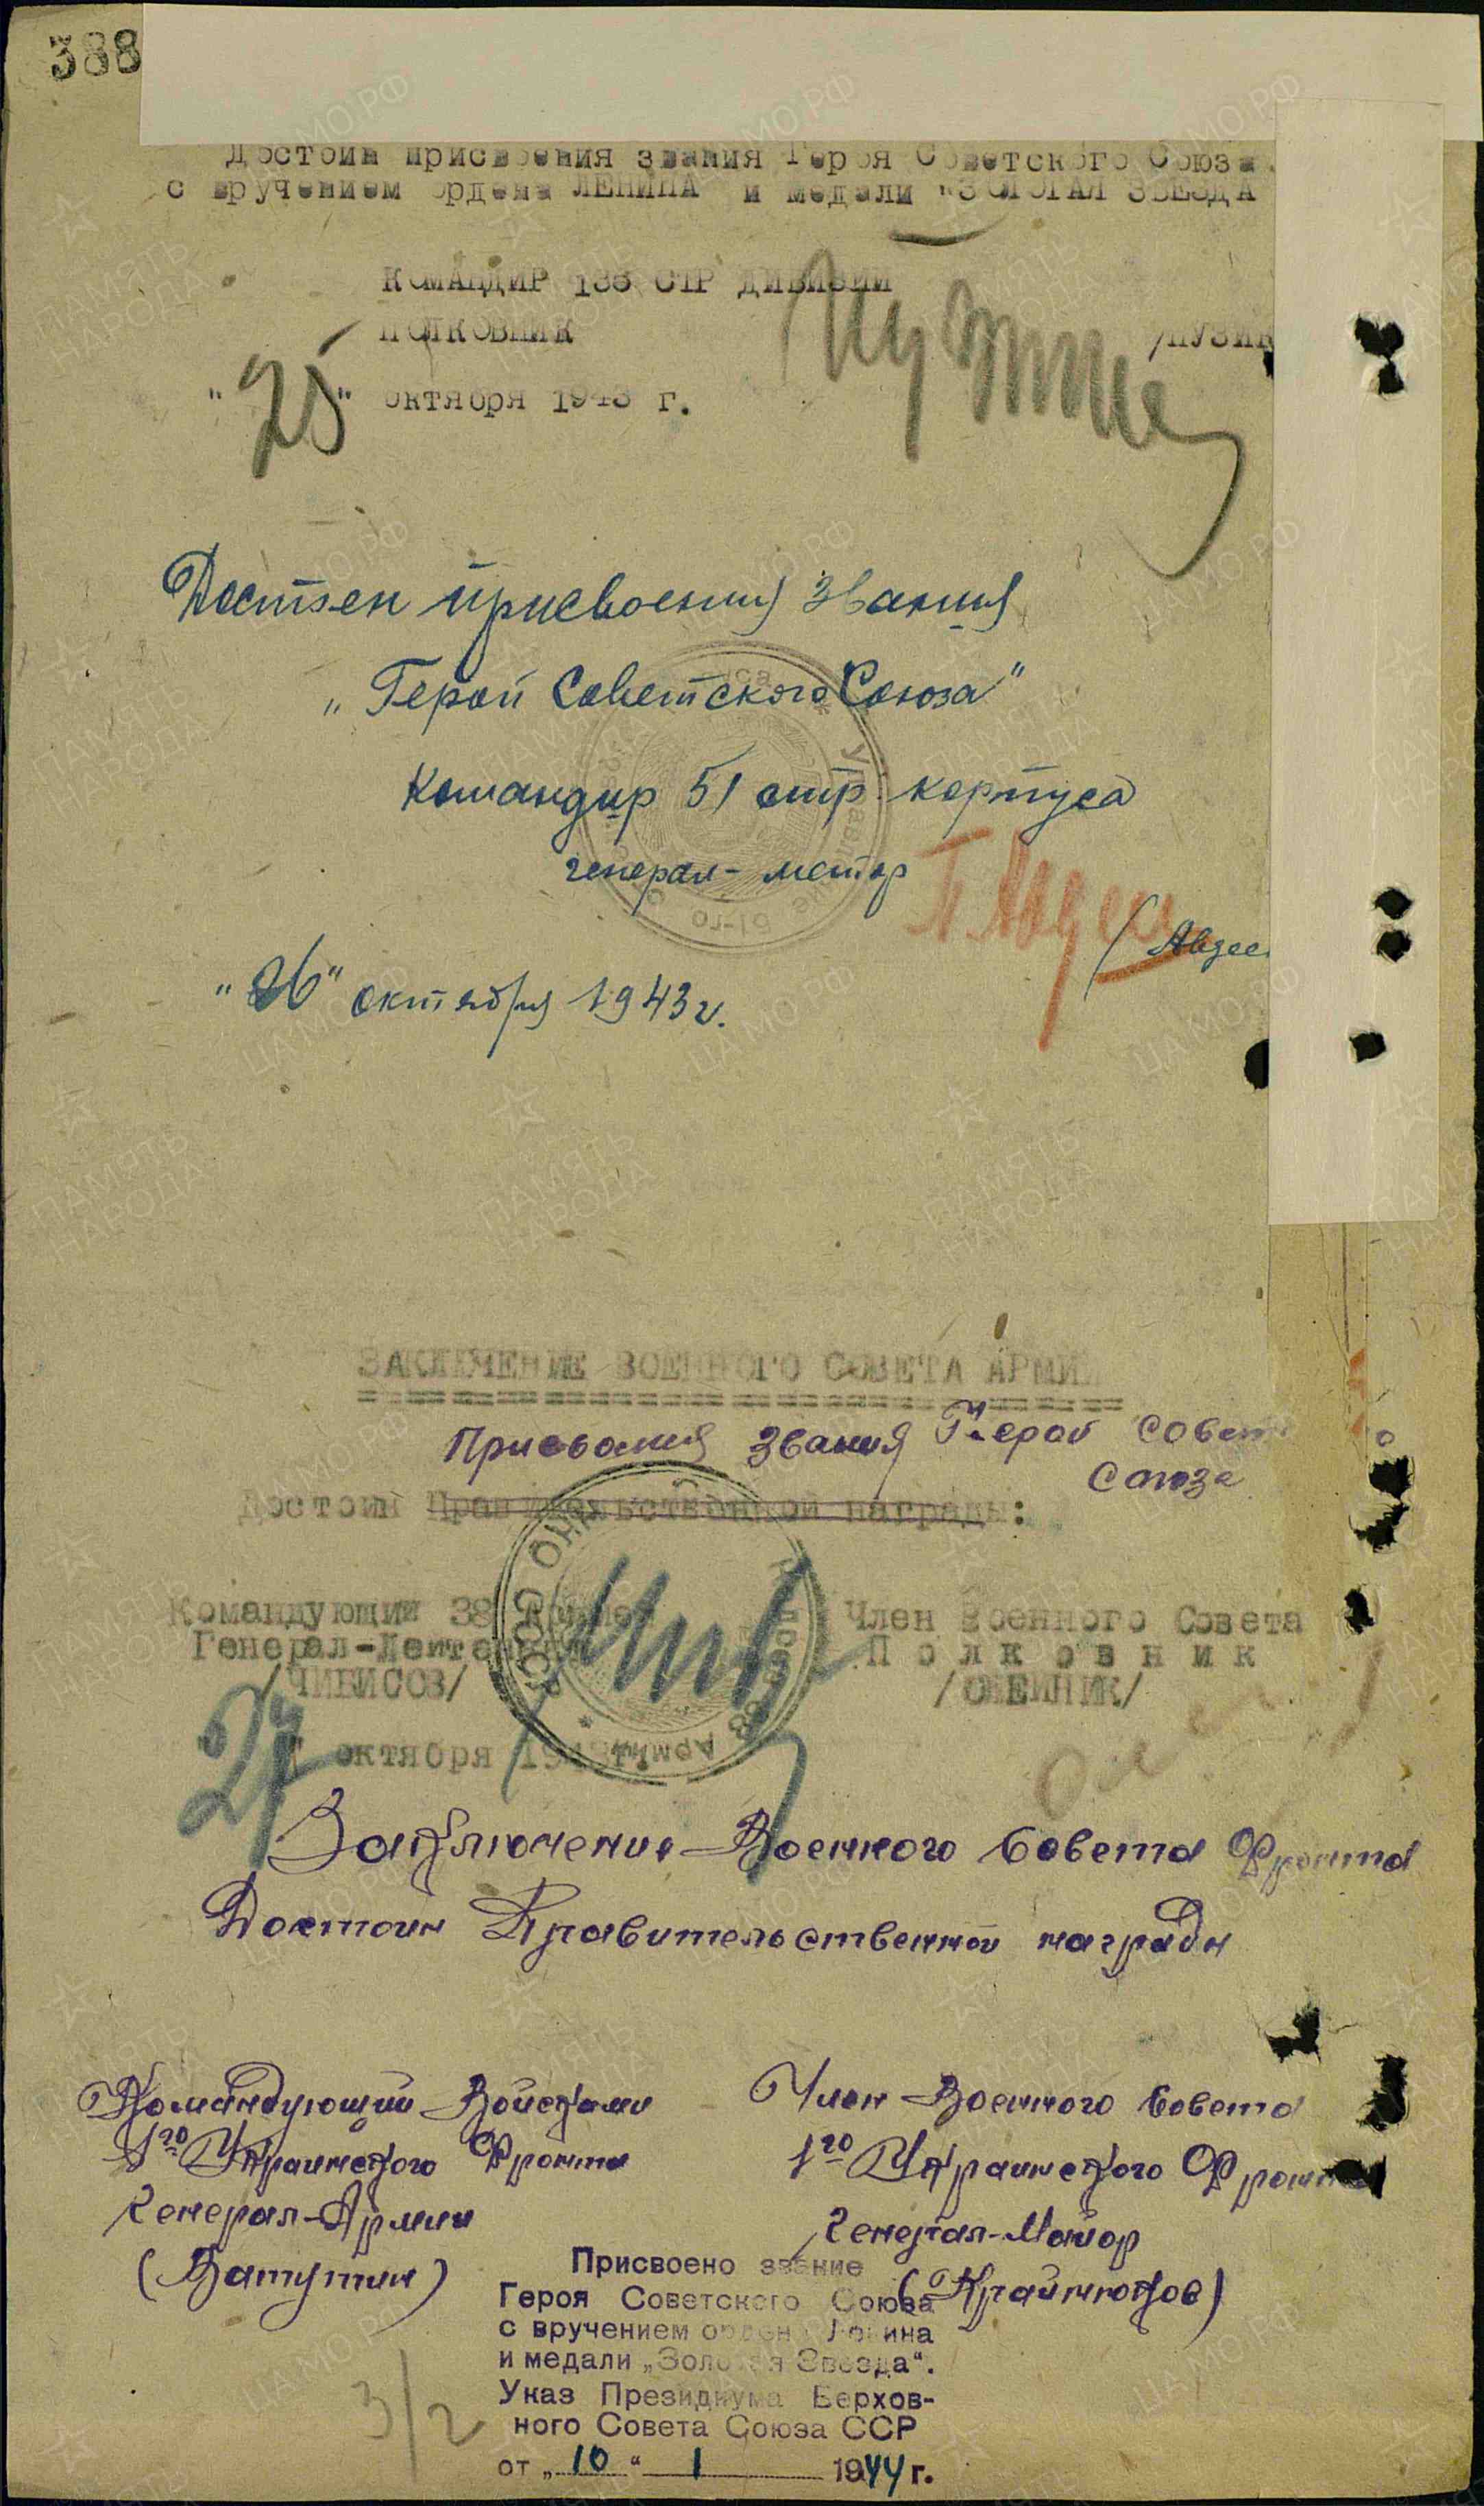 388
Достоин присвоения звания Героя Советского Союза
с вручением ордена ЛЕНИНА и медали "ЗОЛОТАЯ ЗВЕЗДА
КОМАНДИР СТР ДИВИЗИИ
ПОЛКОВНИК /ПУЗИК
"25" октября 1943 г.
Достоен присвоения звания
„Герой Советского Союза"
Командир 51 стр. корпуса
генерал-майор
(Авдеен
"26" октября 1943 г.
ЗАКЛЮЧЕНИЕ ВОЕННОГО СОВЕТА АРМИИ
Присвоения звания Герой Совет
Союза
Достоин Правительственной награды:
Командующий 38 Армией Член Военного Совета
Генерал-Лейтенант Полковник
/ЧИБИСОВ/ /ОЛЕЙНИК/
"27" октября 1943
Заключение Военного Совета Фронта
Достоин Правительственной награды
Командующий Войсками Член Военного Совета
1го Украинского Фронта 1го Украинского Фронта
Генерал-Армии Генерал-Майор
(Ватутин) (Крайнюков)
Присвоено звание
Героя Советского Союза
с вручением ордена Ленина
и медали „Золотая Звезда".
Указ Президиума Верхов-
ного Совета Союза ССР
от „10" 1 1944 г.
3/2